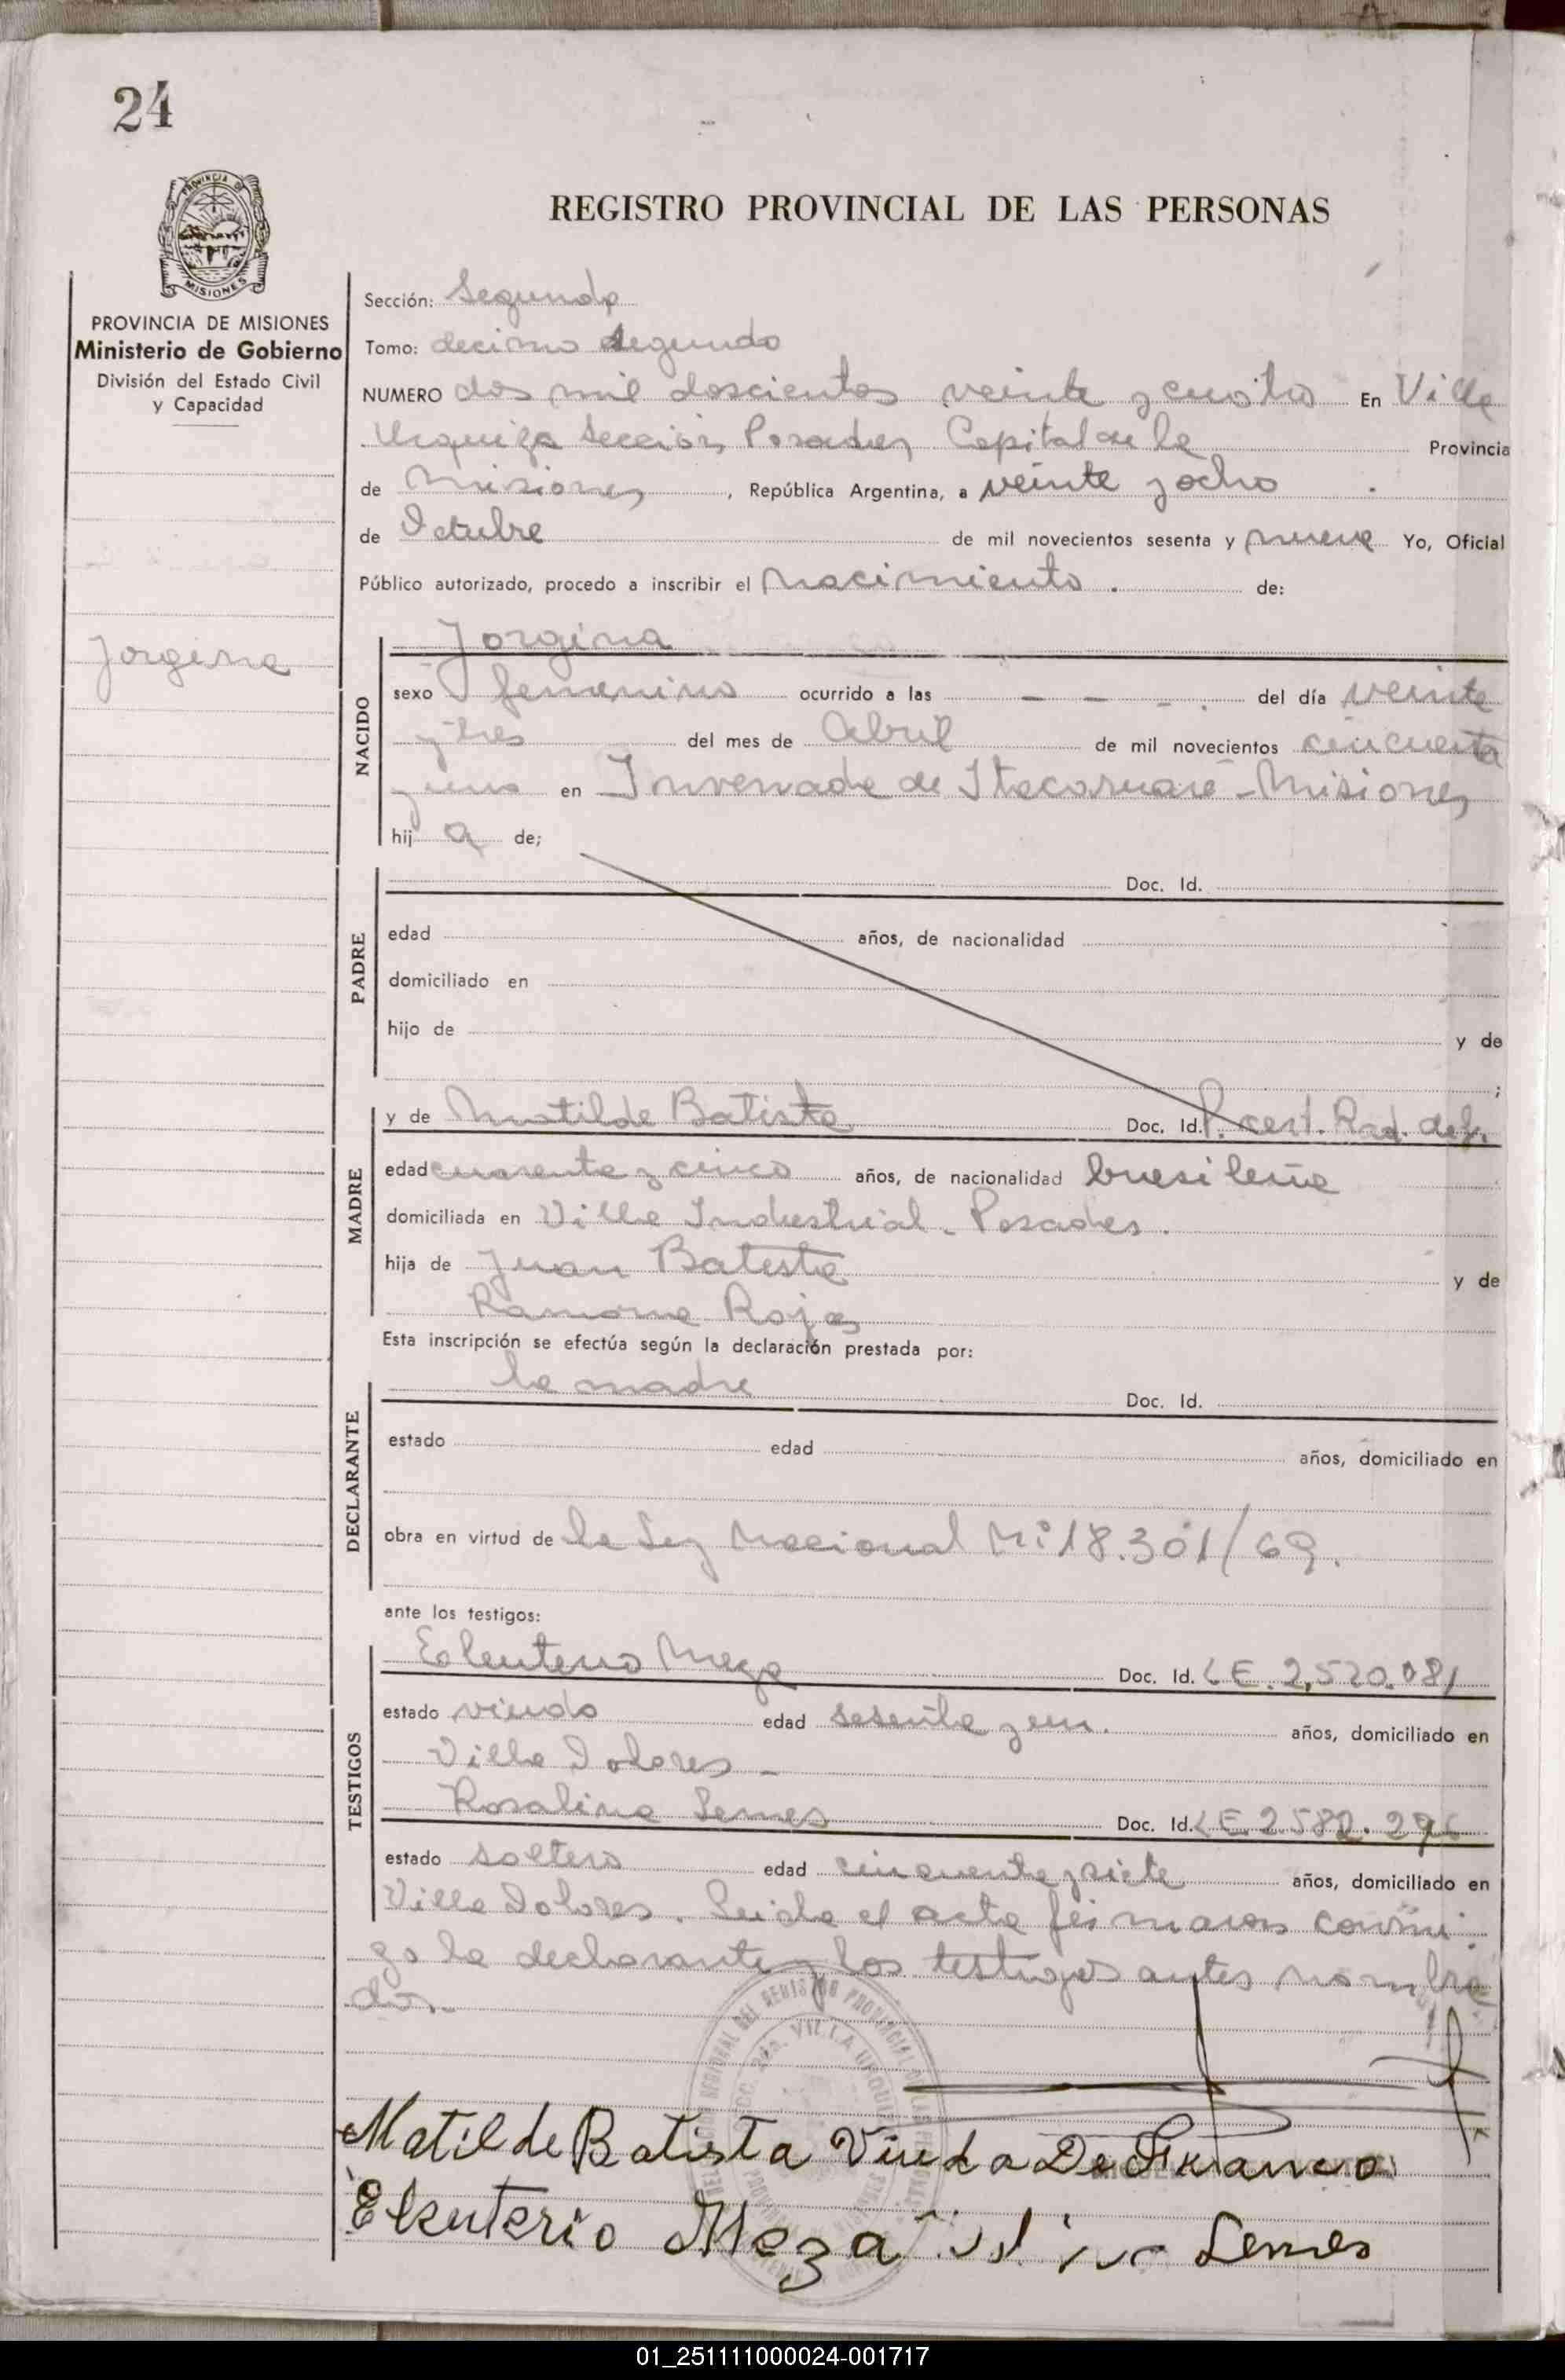 24
PROVINCIA DE
MISIONES
REGISTRO PROVINCIAL DE LAS PERSONAS
PROVINCIA DE MISIONES
Ministerio de Gobierno
División del Estado Civil
y Capacidad
Jorgina
Sección: Segunda
Tomo: decimo segundo
NUMERO dos mil doscientos veinte y cuatro En Villa
Urquiza Sección Posadas Capital de la Provincia
de Misiones, República Argentina, a veinte y ocho
de Octubre de mil novecientos sesenta y nueve Yo, Oficial
Público autorizado, procedo a inscribir el nacimiento. de:
NACIDO
Jorgina
sexo femenino ocurrido a las – – – . del día veinte
y tres del mes de Abril de mil novecientos cincuenta
y uno en Invernada de Itacaruaré - Misiones
hij a de;
PADRE
Doc. Id.
edad años, de nacionalidad
domiciliado en
hijo de y de
;
MADRE
y de Matilde Batista Doc. Id. P. cert. Rad. def.
edad cuarenta y cinco años, de nacionalidad brasileña
domiciliada en Villa Industrial - Posadas.
hija de Juan Batista y de
Ramona Rojas
Esta inscripción se efectúa según la declaración prestada por:
DECLARANTE
la madre Doc. Id.
estado edad años, domiciliado en
obra en virtud de la Ley Nacional N: 18.301/69.
ante los testigos:
TESTIGOS
Eleuterio Meza Doc. Id. L E. 2.520.081
estado viudo edad sesenta y un. años, domiciliado en
Villa Dolores -
Rosalino Lemes Doc. Id. L E. 2.582.296
estado soltero edad cincuenta y siete años, domiciliado en
Villa Dolores. Leida el acta firmaron conmi-
go la declarante y los testigos antes nombra
dos.
Matilde Batista Viuda De Franco
Eleuterio Meza Lemes
01_251111000024-001717